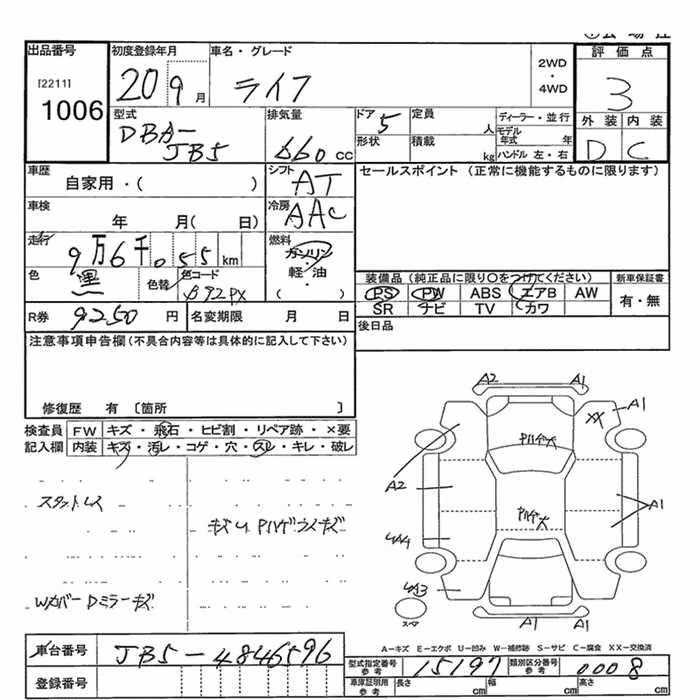 出品番号 初度登録年月 車名・グレード 2WD・4WD 評価点
[2211] 1006 20 9月 ライフ 3
型式 排気量 ドア 定員 ディーラー・並行 外装 内装
DBA-JB5 660cc 5 人 モデル年式 年 D C
形状 積載 kg ハンドル 左・右
車歴 シフト セールスポイント (正常に機能するものに限ります)
自家用・( ) AT
車検 冷房
年 月( 日) AAC
走行 9万6千055km 燃料
ガソリン
軽・油
( )
色 黒 色替 色コード B92PX
装備品 (純正品に限り○をつけてください) 新車保証書
PS PW ABS エアB AW 有・無
SR ナビ TV カワ
R券 9250円 名変期限 月 日
後日品
注意事項申告欄(不具合内容等は具体的に記入して下さい)
修復歴 有 〔箇所 〕
検査員 FW キズ・飛石・ヒビ割・リペア跡・×要
記入欄 内装 キズ・汚レ・コゲ・穴・スレ・キレ・破レ
A2 A1
XX A1
A2
A1
スタットレス
A1 A1
スペア
Wカバー Dミラーキズ
A-キズ E-エクボ U-凹み W-補修跡 S-サビ C-腐食 XX-交換済
車台番号 JB5-4846596
型式指定番号 参考 15197 類別区分番号 参考 0008
登録番号
車庫証明用 参考 長さ cm 幅 cm 高さ cm